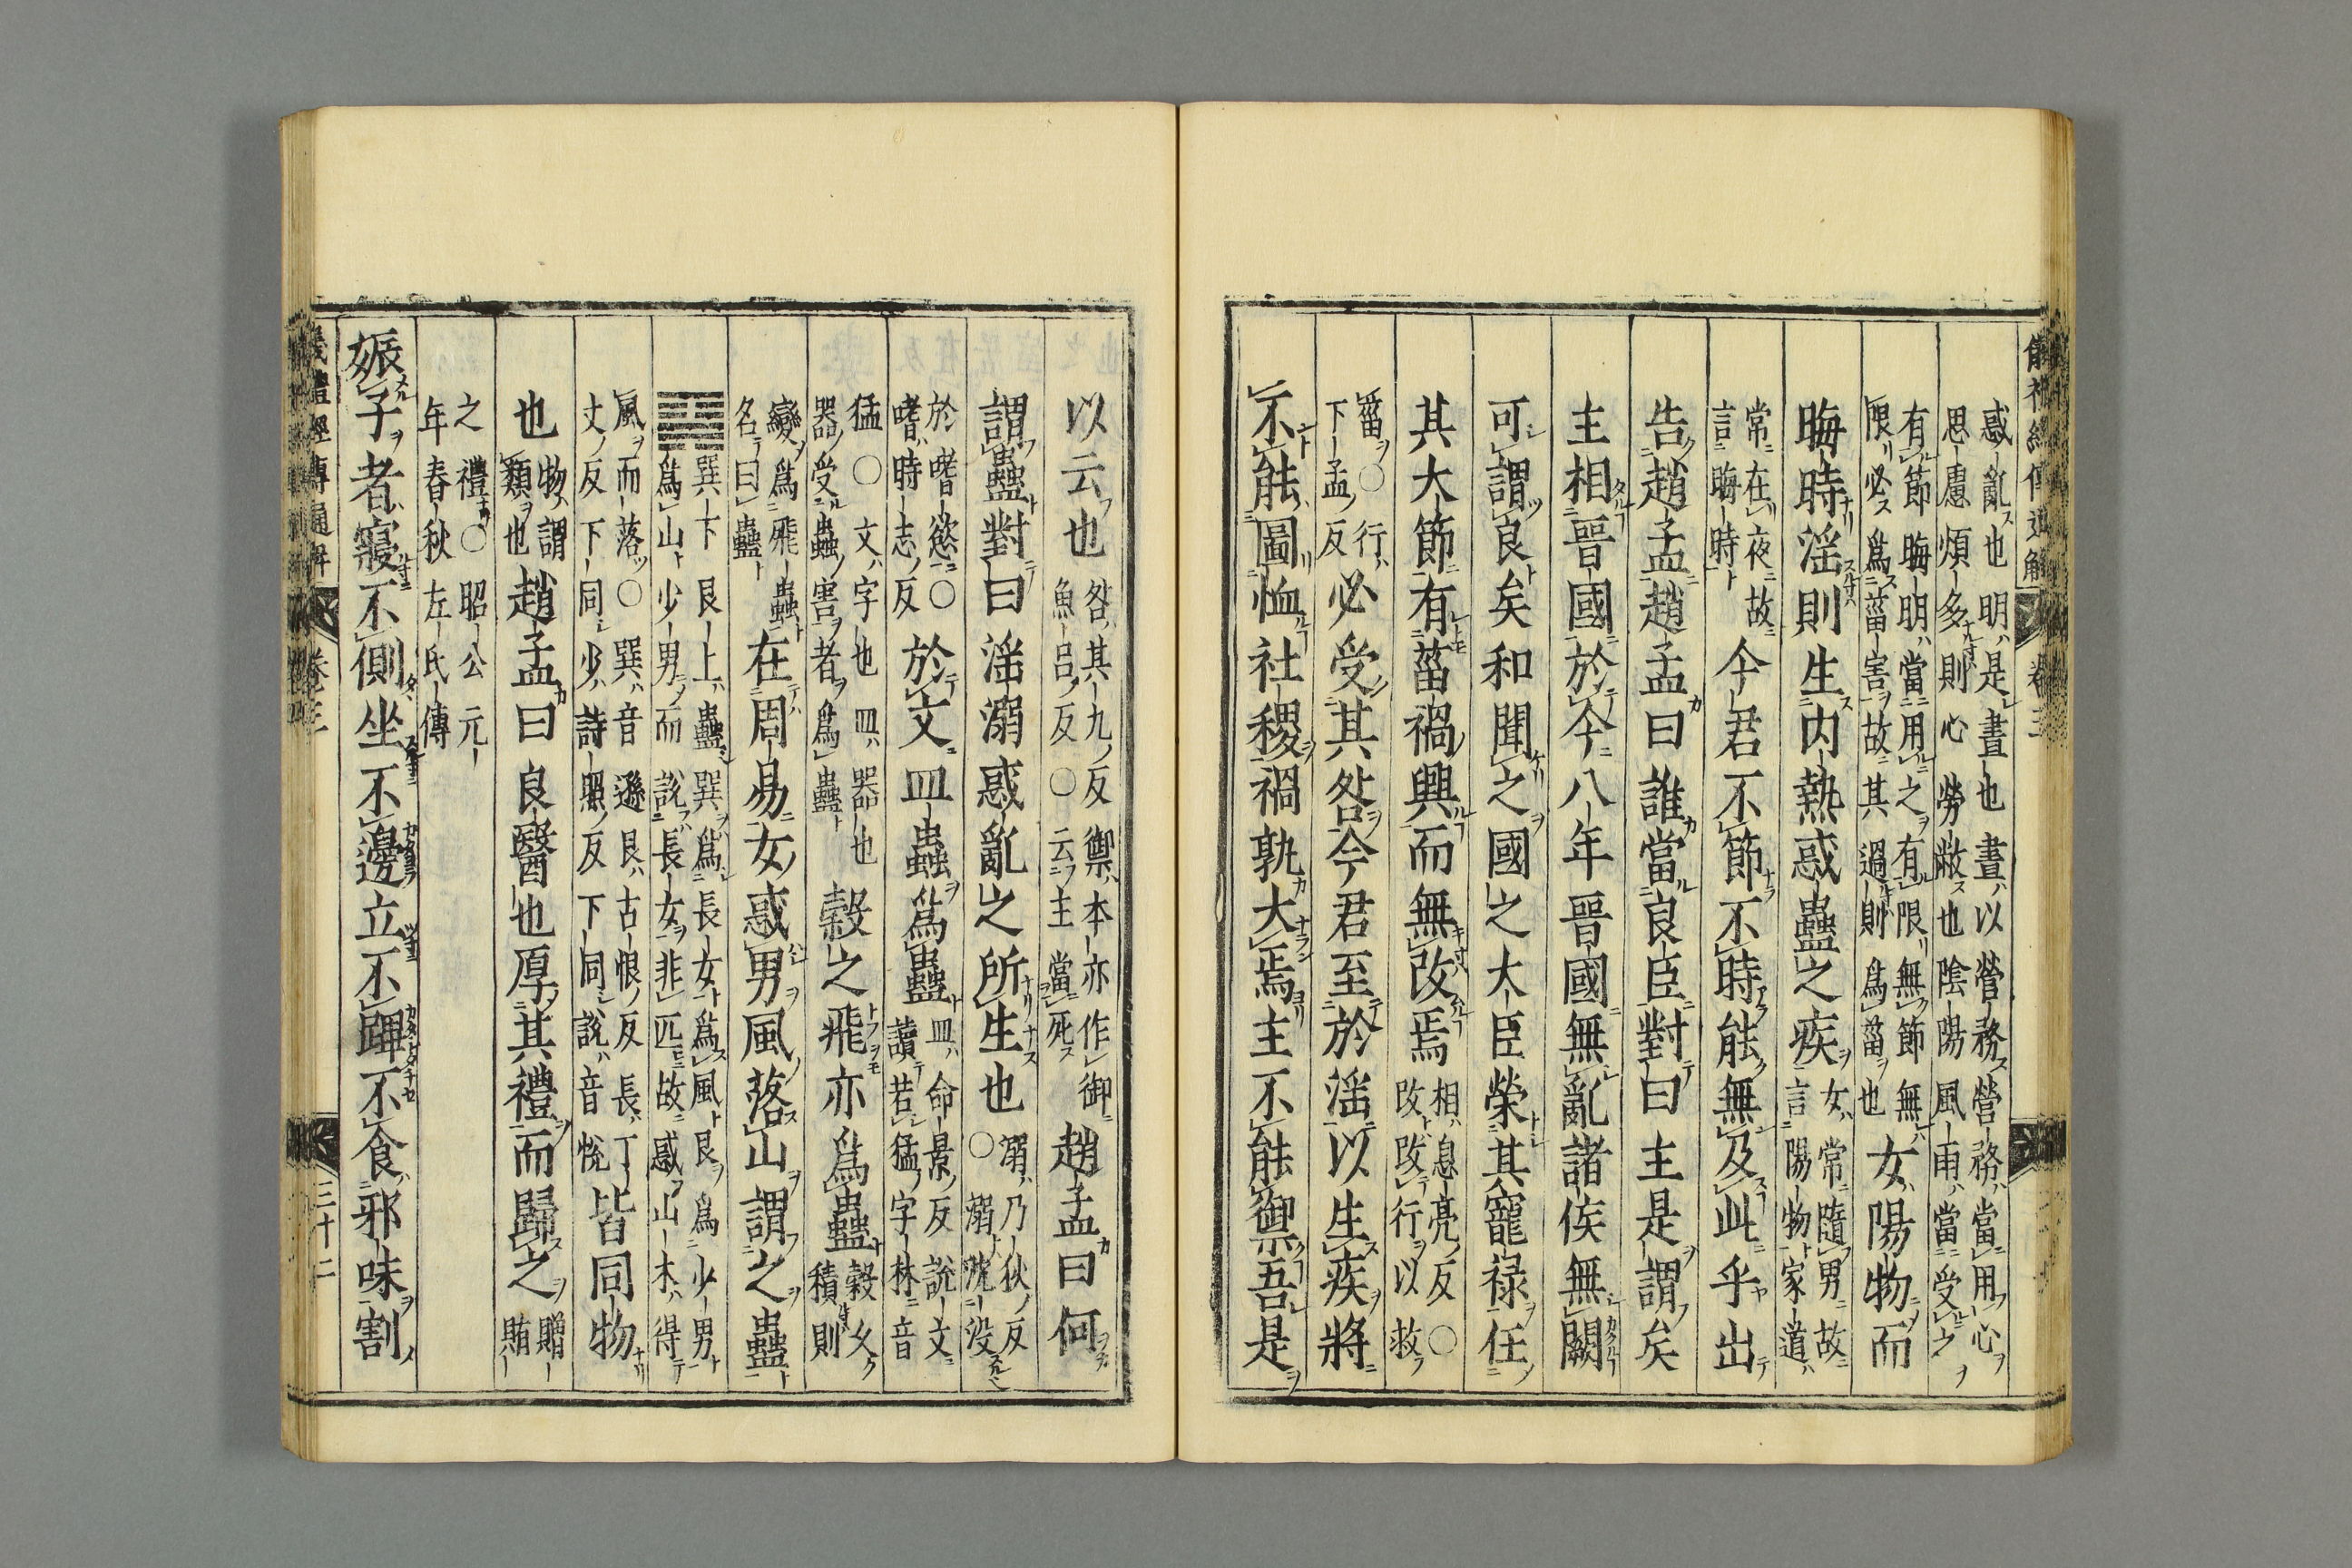 儀禮經傳通解 卷三
惑亂也明是晝也晝以營務營務當用心
思慮煩多則心勞敝也陰陽風雨當受之
有節晦明當用之有限無節無
限必爲菑害故其過則爲菑也
女陽物而
晦時淫則生内熱惑蠱之疾
女常隨男故
言陽物家道
常在夜故
言晦時
今君不節不時能無及此乎出
告趙孟趙孟曰誰當良臣對曰主是謂矣
主相晉國於今八年晉國無亂諸侯無闕
可謂良矣和聞之國之大臣榮其寵禄任
其大節有菑禍興而無改焉
相息亮反○
改改行以救
菑○行
下孟反
必受其咎今君至於淫以生疾將
不能圖恤社稷禍孰大焉主不能禦吾是
以云也
咎其九反禦本亦作御
魚呂反○云主當死
趙孟曰何
謂蠱對曰淫溺惑亂之所生也
溺乃狄反
○溺沈没
於嗜慾○
嗜時志反
於文皿蟲爲蠱
皿命景反說文
讀若猛字林音
猛○文字也皿器也
器受蟲害者爲蠱
穀之飛亦爲蠱
穀久
積則
變爲飛蟲
名曰蠱
在周易女惑男風落山謂之蠱
巽下艮上蠱巽爲長女爲風艮爲少男
爲山少男而說長女非匹故惑山木得
風而落○巽音遜艮古恨反長丁
丈反下同少詩照反下同說音悅
皆同物
也
物謂
類也
趙孟曰良醫也厚其禮而歸之
贈
賄
之禮○昭公元
年春秋左氏傳
娠子者寢不側坐不邊立不蹕不食邪味割
儀禮經傳通解 卷三 三十二